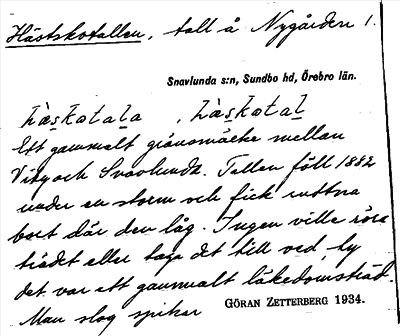 Hästskotallen, tall å Nygården 1.
Snavlunda s:n, Sundbo hd, Örebro län.
Ett gammalt gränsmärke mellan
Viby och Snavlunda. Tallen föll 1882
under en storm och fick ruttna
bort där den låg. Ingen ville röra
trädet eller taga det till ved, ty
det var ett gammalt läkedomsträd.
Man slog spikar
GÖRAN ZETTERBERG 1934.